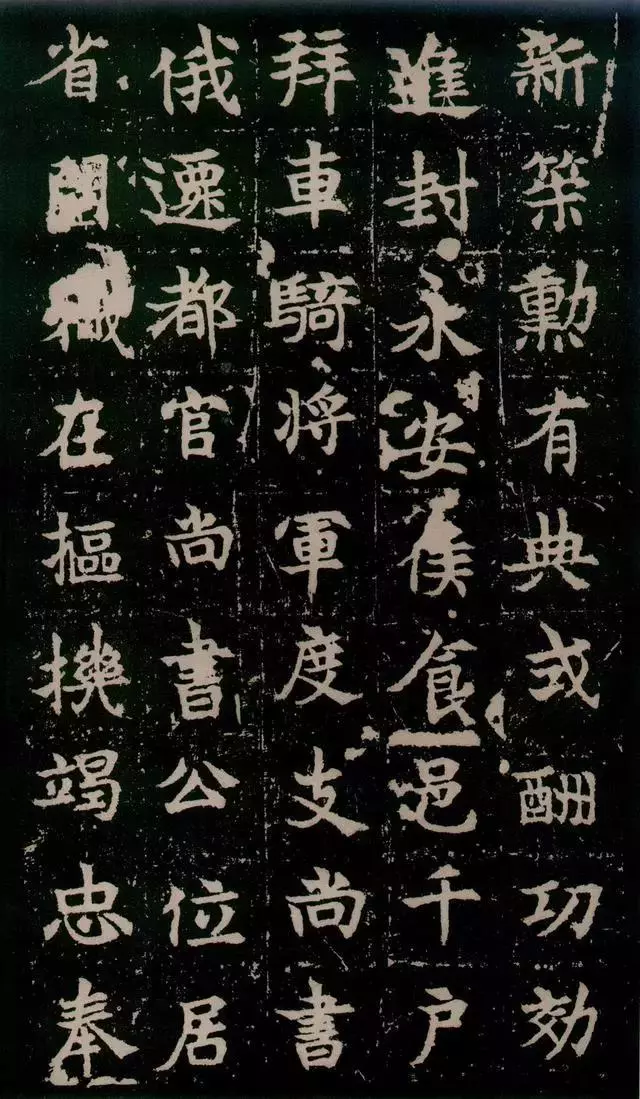 新築勳有典式酬功効
進封永安侯食邑千户
拜車騎將軍度支尚書
俄遷都官尚書公位居
省閣職在樞機竭忠奉